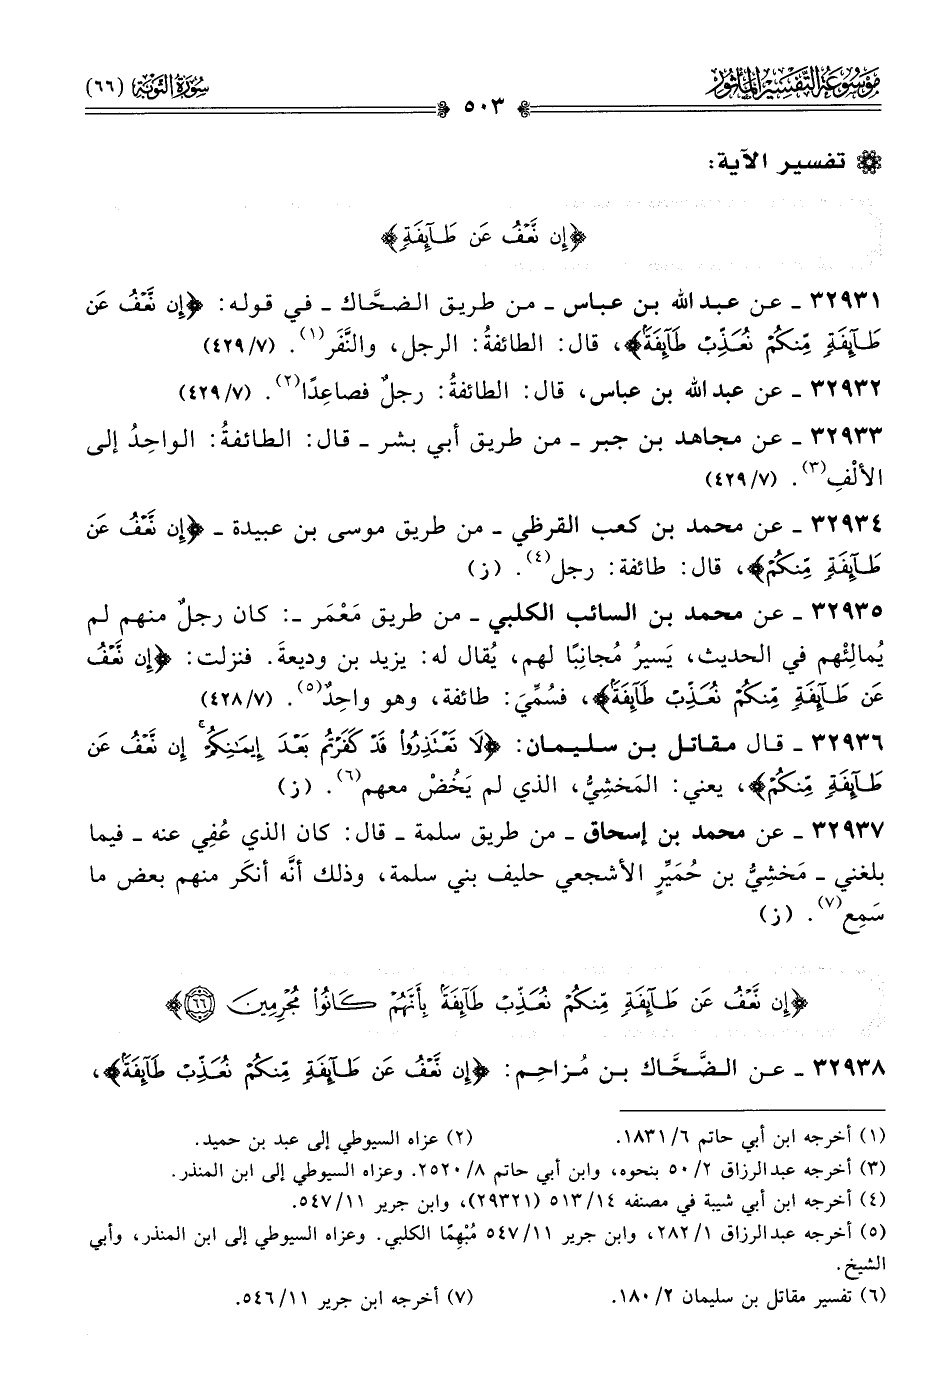 مَوْسُوعَةُ التَّفْسِيرِ المَأْثُورِ
سُورَةُ التَّوْبَةِ (٦٦)
٥٠٣
تفسير الآية:
﴿إِن نَّعْفُ عَن طَآئِفَةٍ﴾
٣٢٩٣١ ـ عن عبد الله بن عباس ـ من طريق الضحَّاك ـ في قوله: ﴿إِن نَّعْفُ عَن
طَآئِفَةٍ مِّنكُمْ نُعَذِّبْ طَآئِفَةً﴾، قال: الطائفةُ: الرجل، والنَّفَر(١). (٧/ ٤٢٩)
٣٢٩٣٢ ـ عن عبد الله بن عباس، قال: الطائفةُ: رجلٌ فصاعِدًا(٢). (٧/ ٤٢٩)
٣٢٩٣٣ ـ عن مجاهد بن جبر ـ من طريق أبي بشر ـ قال: الطائفةُ: الواحِدُ إلى
الألْفِ(٣). (٧/ ٤٢٩)
٣٢٩٣٤ ـ عن محمد بن كعب القرظي ـ من طريق موسى بن عبيدة ـ ﴿إِن نَّعْفُ عَن
طَآئِفَةٍ مِّنكُمْ﴾، قال: طائفة: رجل(٤). (ز)
٣٢٩٣٥ ـ عن محمد بن السائب الكلبي ـ من طريق مَعْمَر ـ: كان رجلٌ منهم لم
يُمالِئْهم في الحديث، يَسيرُ مُجانِبًا لهم، يُقال له: يزيد بن وديعةَ. فنزلت: ﴿إِن نَّعْفُ
عَن طَآئِفَةٍ مِّنكُمْ نُعَذِّبْ طَآئِفَةً﴾، فسُمِّيَ: طائفة، وهو واحِدٌ(٥). (٧/ ٤٢٨)
٣٢٩٣٦ ـ قال مقاتل بن سليمان: ﴿لَا تَعْتَذِرُواْ قَدْ كَفَرْتُم بَعْدَ إِيمَٰنِكُمْۚ إِن نَّعْفُ عَن
طَآئِفَةٍ مِّنكُمْ﴾، يعني: المَخشِيُّ، الذي لم يَخُضْ معهم(٦). (ز)
٣٢٩٣٧ ـ عن محمد بن إسحاق ـ من طريق سلمة ـ قال: كان الذي عُفِي عنه ـ فيما
بلغني ـ مَخشِيُّ بن حُمَيِّرٍ الأشجعي حليف بني سلمة، وذلك أنَّه أنكَر منهم بعض ما
سَمِع(٧). (ز)
﴿إِن نَّعْفُ عَن طَآئِفَةٍ مِّنكُمْ نُعَذِّبْ طَآئِفَةً بِأَنَّهُمْ كَانُواْ مُجْرِمِينَ ٦٦﴾
٣٢٩٣٨ ـ عـن الـضَّحَّاك بـن مُـزاحِـم: ﴿إِن نَّعْفُ عَن طَآئِفَةٍ مِّنكُمْ نُعَذِّبْ طَآئِفَةً﴾،
(١) أخرجه ابن أبي حاتم ٦/ ١٨٣١. (٢) عزاه السيوطي إلى عبد بن حميد.
(٣) أخرجه عبد الرزاق ٢/ ٥٠ بنحوه، وابن أبي حاتم ٨/ ٢٥٢٠. وعزاه السيوطي إلى ابن المنذر.
(٤) أخرجه ابن أبي شيبة في مصنفه ١٤/ ٥١٣ (٢٩٣٢١)، وابن جرير ١١/ ٥٤٧.
(٥) أخرجه عبد الرزاق ١/ ٢٨٢، وابن جرير ١١/ ٥٤٧ مُبْهِمًا الكلبي. وعزاه السيوطي إلى ابن المنذر، وأبي
الشيخ.
(٦) تفسير مقاتل بن سليمان ٢/ ١٨٠. (٧) أخرجه ابن جرير ١١/ ٥٤٦.